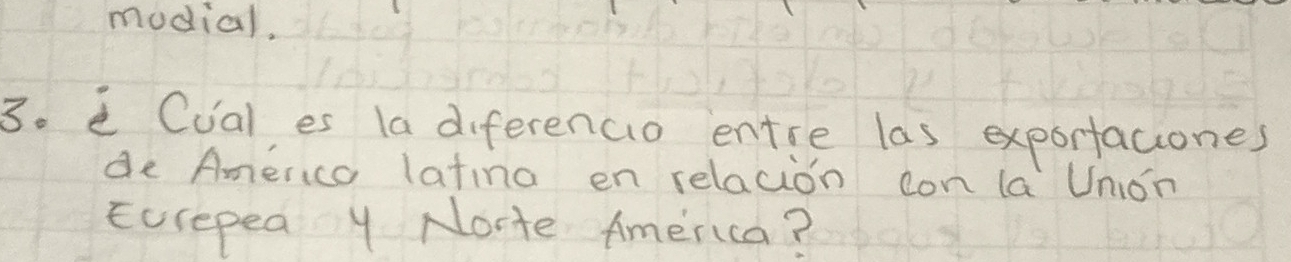 modial.
3. ¿ Cúal es la diferencia entre las exportaciones
de América latina en relación con la Unión
Eurepea y Norte América?